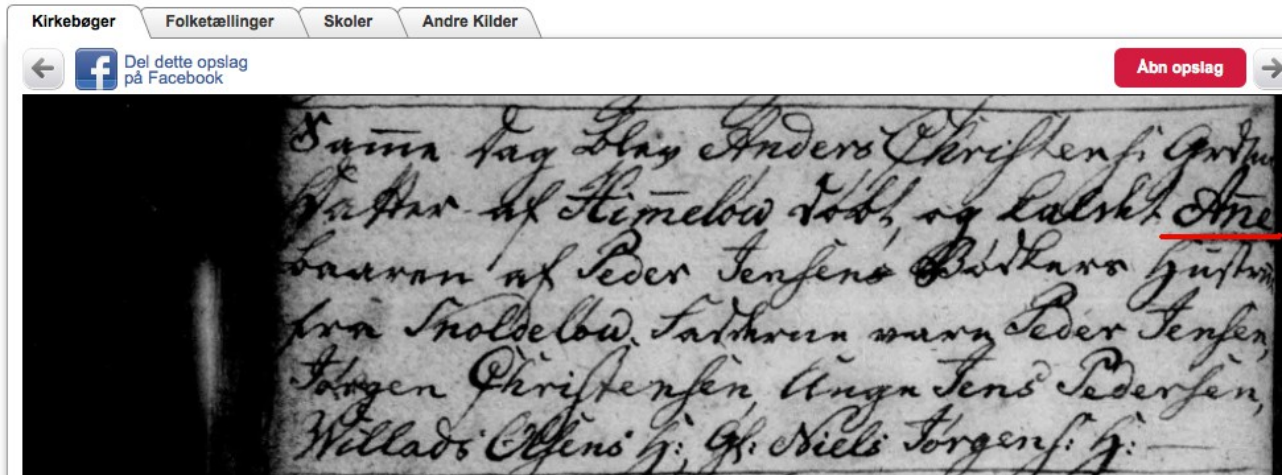 Kirkebøger
Folketællinger
Skoler
Andre Kilder
Del dette opslag
på Facebook
Åbn opslag
Samme dag blev Anders Christens:
Datter af Himelöw döbt, og kaldet Ane
baaren af Peder Jensens Bödkers Hustru
fra Snoldelöw. Fadderne vare Peder Jensen,
Jörgen Christensen, Unge Jens Pedersen,
Willads Olsens H: Gl: Niels Jörgens: H: